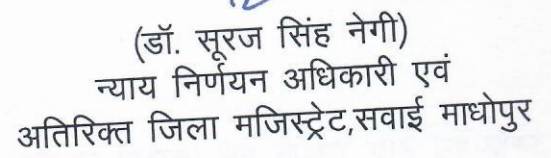 (डॉ. सूरज सिंह नेगी)
न्याय निर्णयन अधिकारी एवं
अतिरिक्त जिला मजिस्ट्रेट,सवाई माधोपुर